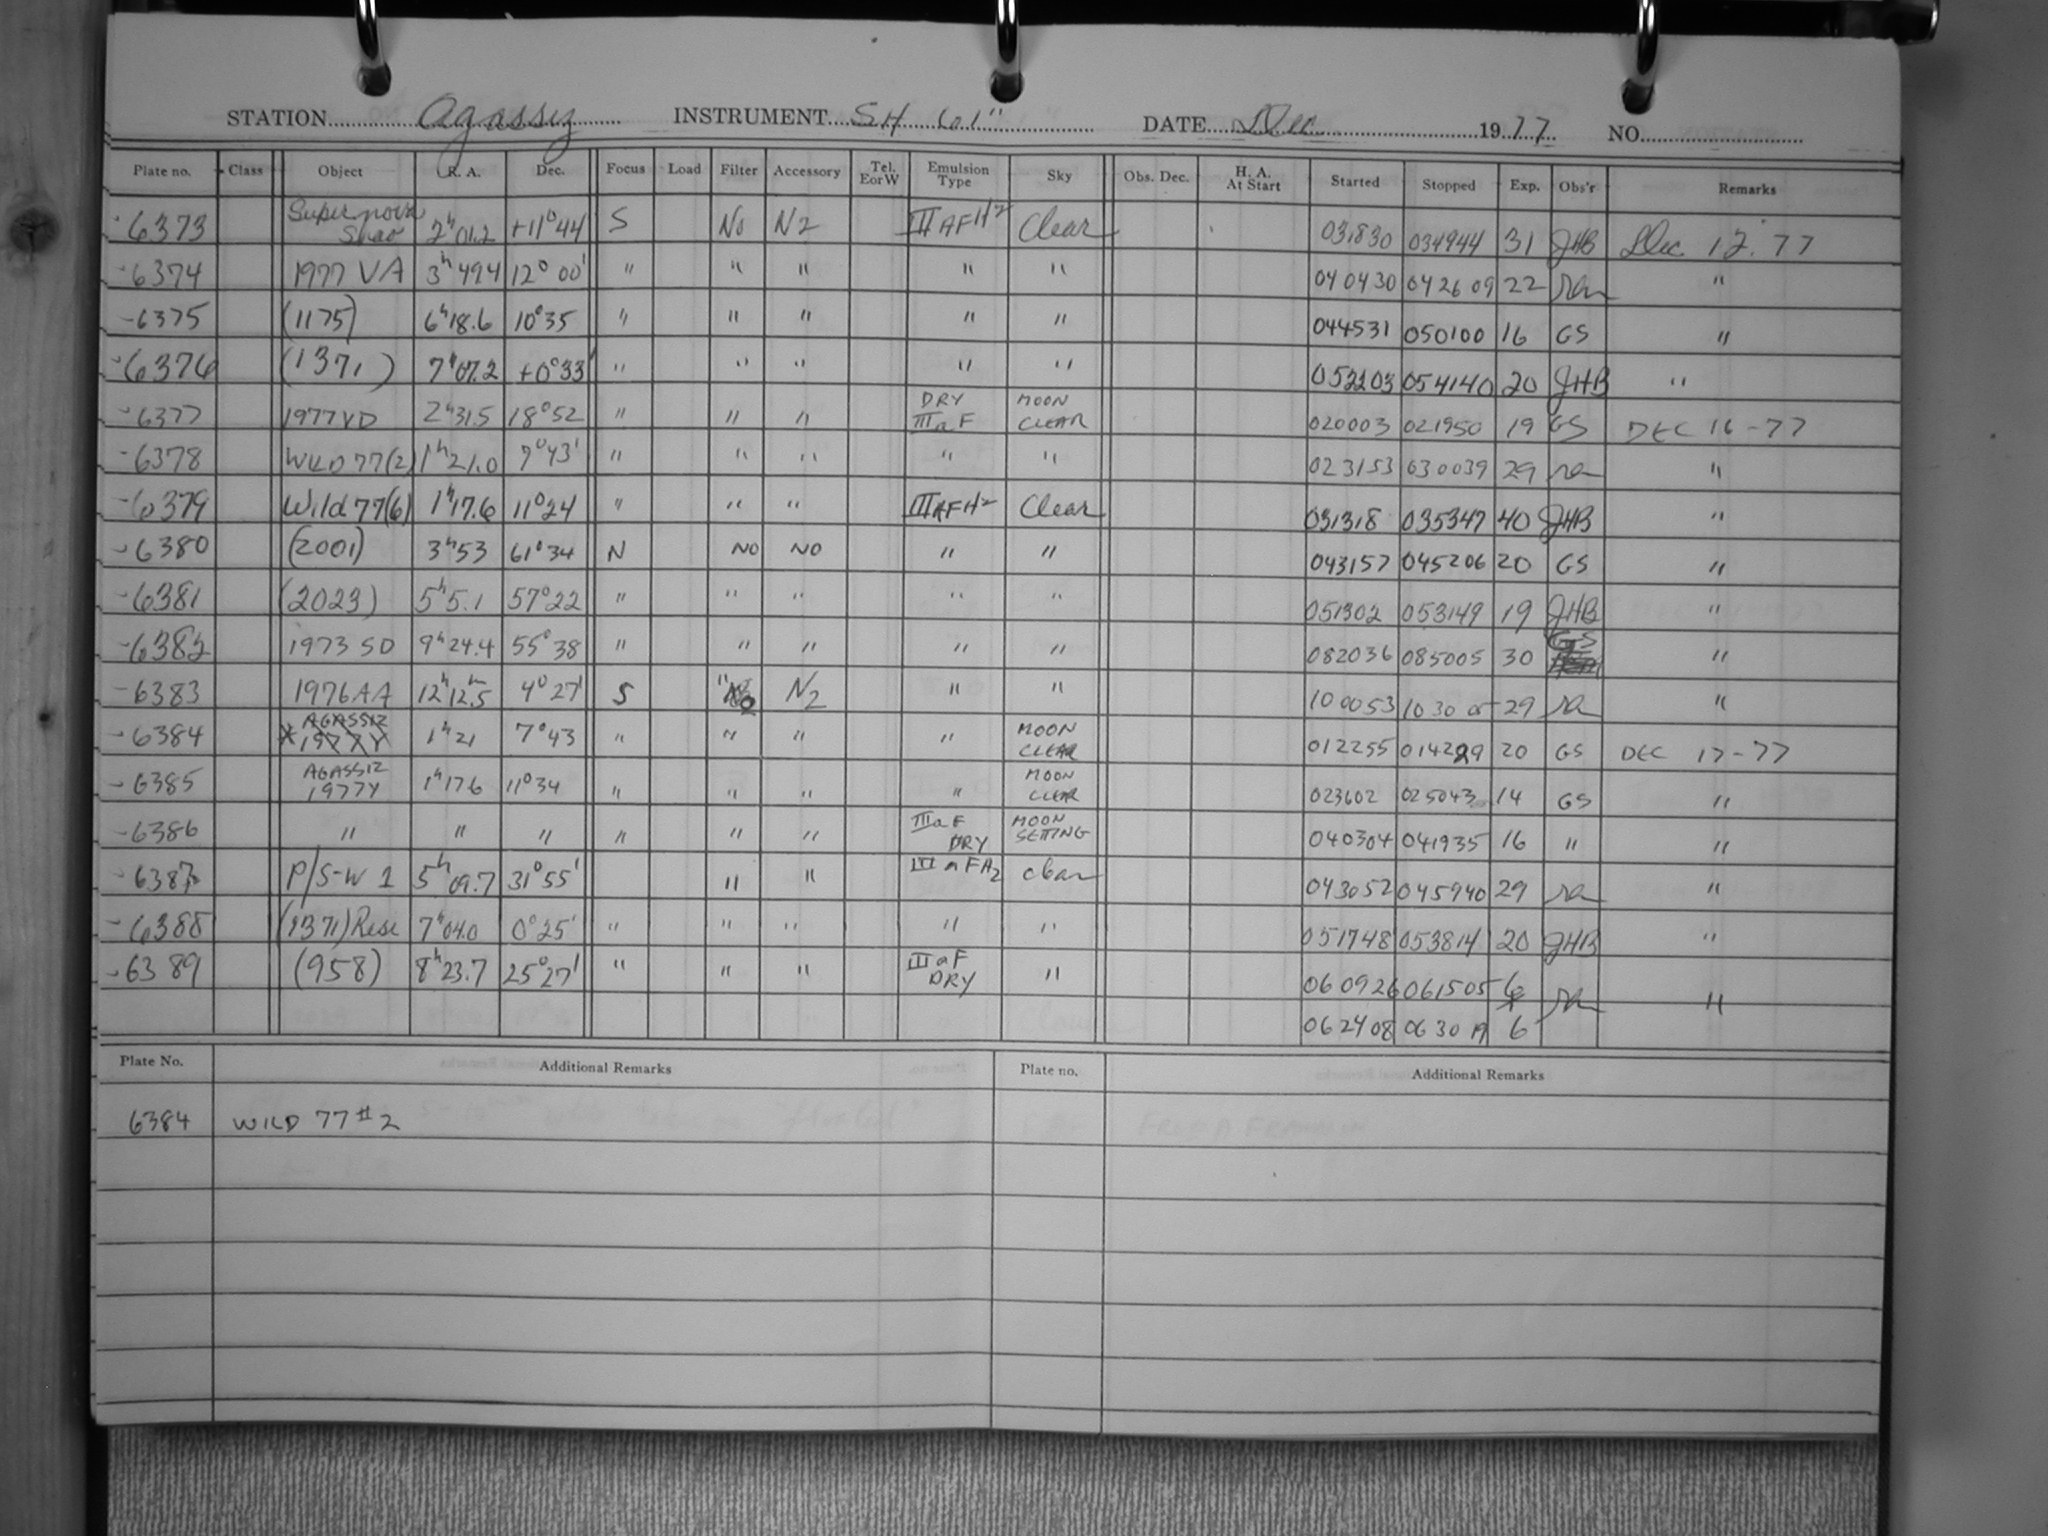 STATION Agassiz INSTRUMENT SH 61" DATE Dec 1977 NO.
Plate no. Class Object R. A. Dec. Focus Load Filter Accessory Tel. E or W Emulsion Type Sky Obs. Dec. H. A. At Start Started Stopped Exp. Obs'r Remarks
6373 Supernova Shao 2h 01.2 +11° 44 S No N2 IIIAFH2 Clear 031830 034944 31 JHB Dec 12. 77
-6374 1977 VA 3h 49.4 12° 00' " " " " " 040430 042609 22 "
-6375 (1175) 6h 18.6 10° 35 " " " " " 044531 050100 16 GS "
-6376 (1371) 7h 07.2 +0° 33' " " " " " 052203 054140 20 JHB "
-6377 1977 VD 2h 31.5 18° 52 " " " DRY IIIaF MOON CLEAR 020003 021950 19 GS DEC 16-77
-6378 WILD 77(2) 1h 21.0 7° 43' " " " " " 023153 030039 29 "
-6379 Wild 77(6) 1h 17.6 11° 24 " " " IIIAFH2 Clear 031318 035347 40 JHB "
-6380 (2001) 3h 53 61° 34 N NO NO " " 043157 045206 20 GS "
-6381 (2023) 5h 5.1 57° 22 " " " " " 051302 053149 19 JHB "
-6382 1973 SD 9h 24.4 55° 38 " " " " " 082036 085005 30 GS "
-6383 1976 AA 12h 12.5m 4° 27' S " N2 " " 100053 103005 29 "
-6384 * AGASSIZ 1977Y 1h 21 7° 43 " " " " MOON CLEAR 012255 014229 20 GS DEC 17-77
-6385 AGASSIZ 1977Y 1h 17.6 11° 34 " " " " MOON CLEAR 023602 025043 14 GS "
-6386 " " " " " " IIIaF DRY MOON SETTING 040304 041935 16 " "
-6387 P/S-W 1 5h 09.7 31° 55' " " IIIaFA2 clear 043052 045940 29 "
-6388 (1371) Resi 7h 04.0 0° 25' " " " " " 051748 053814 20 JHB "
-6389 (958) 8h 23.7 25° 27' " " " IIIaF DRY " 060926 061505 6 "
062408 063019 6
Plate No. Additional Remarks Plate no. Additional Remarks
6384 WILD 77 #2